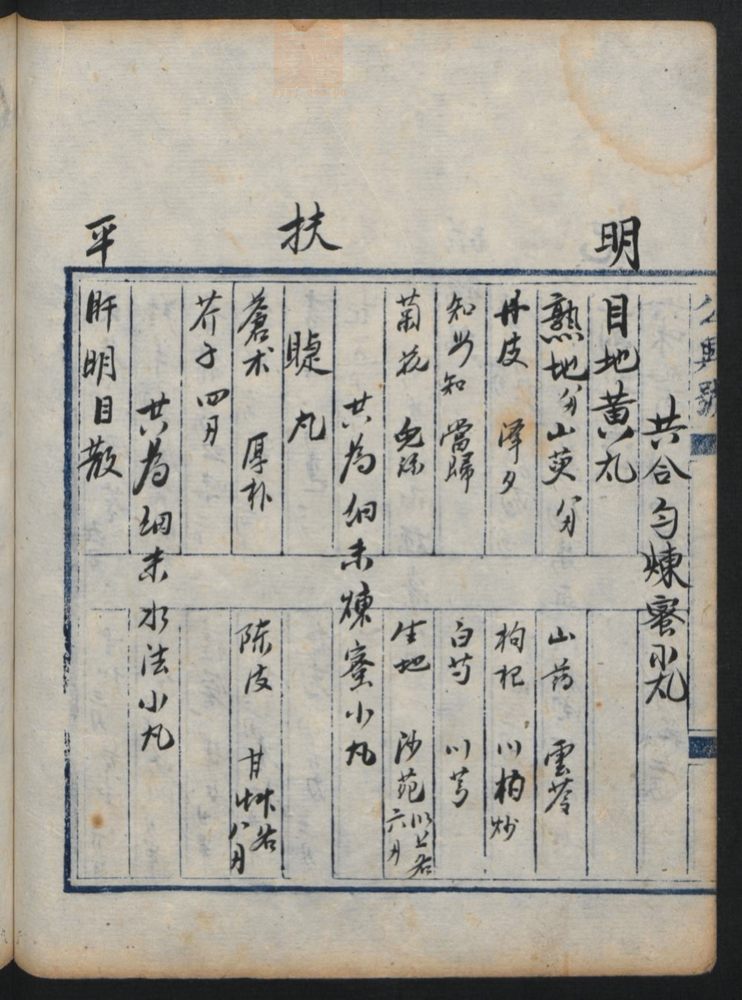 共合勻煉蜜小丸
明目地黃丸
熟地 山萸 山葯 雲苓
丹皮 澤夕 枸杞 川柏炒
知母 當歸 白芍 川芎
菊花 生地 沙苑 以上各六月
共為細末煉蜜小丸
扶 丸
蒼术 厚朴 陈皮 甘艸各八月
芥子四月
共為細末水法小丸
平肝明目散